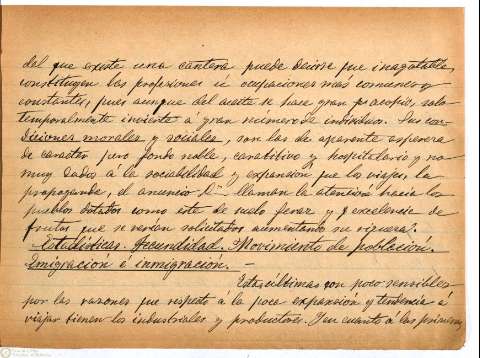 del que existe una cantera puede decirse que inagotable,
constituyen las profesiones ú ocupaciones más comunes y
constantes, pues aunque del aceite se hace gran acopio, solo
temporalmente invierte á gran número de individuos. Sus con-
diciones morales y sociales, son las de aparente aspereza
de carácter pero fondo noble, caratitivo y hospitalario y no
muy dados á la sociabilidad y expansión que los viajes, la
propaganda, el anuncio llaman la atención hacia los
pueblos dotados como este de suelo feraz y excelencia de
frutos que se verían solicitados aumentando su riqueza.
Estadísticas. Fecundidad. Movimiento de población.
Emigración é inmigración. —
Estas últimas son poco sensibles
por las razones que respecto á la poca expansión y tendencia á
viajar tienen los industriales y productores. Y en cuanto á las primeras